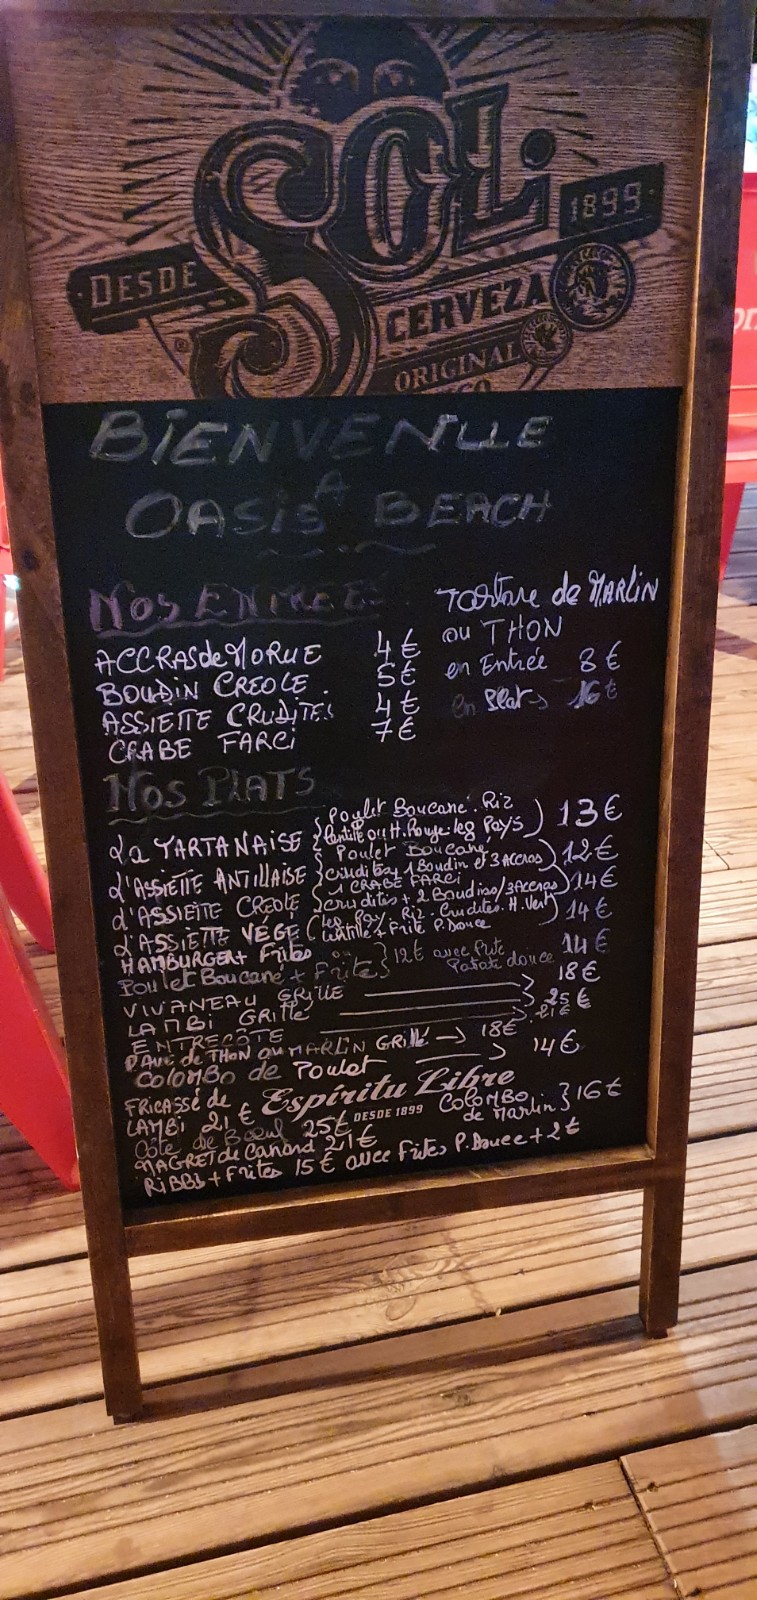 SOL
1899
DESDE
CERVEZA
ORIGINAL
BIENVENUE
A
OASIS BEACH
NOS ENTREES
ACCRAS de MORUE 4€
BOUDIN CREOLE. 5€
ASSIETTE CRUDITES 4€
CRABE FARCI 7€
Tartare de MARLIN
ou THON
en Entrée 8€
en Plat 16€
NOS PLATS
La TARTANAISE { Poulet Boucané. Riz
lentille ou H. Rouge leg Pays ) 13€
L'ASSIETTE ANTILLAISE { Poulet Boucané
crudites, 1 Boudin et 3 Accras ) 12€
L'ASSIETTE CREOLE { 1 CRABE FARCI
crudites + 2 Boudins/3 Accras ) 14€
L'ASSIETTE VEGE ( leg. Pay. Riz. Crudités. H. Vert
lentille + Frite P. Douce ) 14€
HAMBURGER + Frites
Poulet Boucané + Frite } 12€ avec frite
Patate douce 14€
VIVANEAU GRILLE 18€
LAMBI Grillé 25€
ENTRECOTE 21€
PAVE de THON ou MARLIN GRillé → 18€
COLOMBO de Poulet → 14€
Espíritu Libre
DESDE 1899
FRICASSé de
LAMBI 21€
COLOMBO
de Marlin } 16€
Côte de Boeuf 25€
MAGRET de Canard 21€
RIBBS + Frites 15€ avec Frites P. Douce + 2€